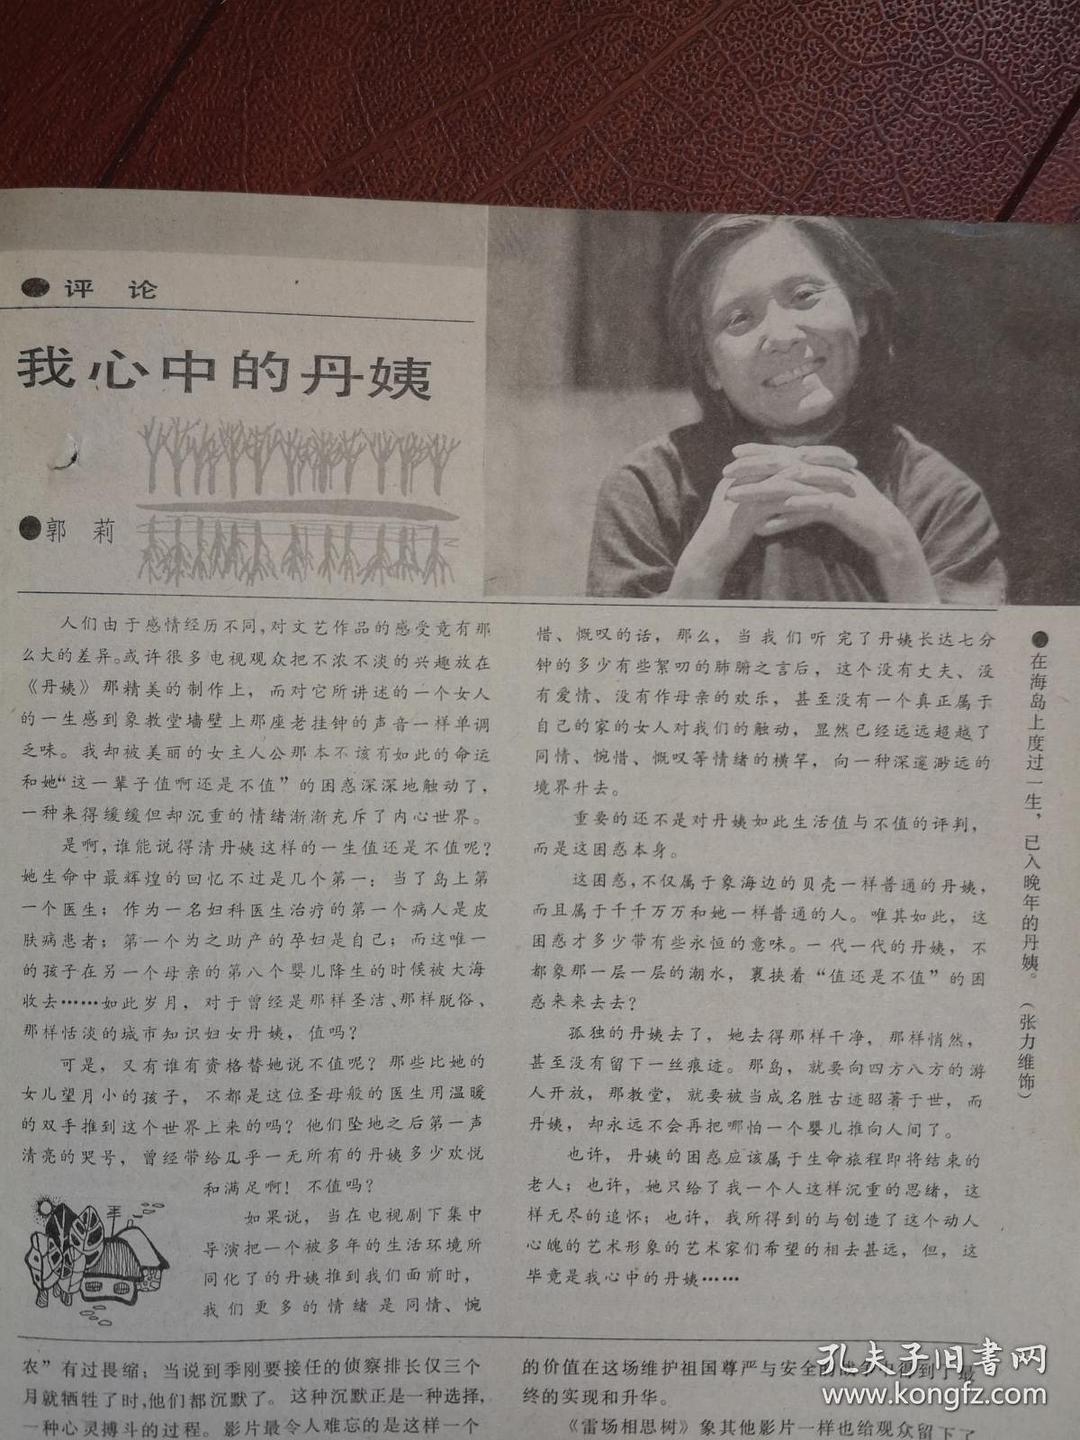 ●评论
我心中的丹姨
●郭莉
人们由于感情经历不同,对文艺作品的感受竟有那
么大的差异。或许很多电视观众把不浓不淡的兴趣放在
《丹姨》那精美的制作上，而对它所讲述的一个女人
的一生感到象教堂墙壁上那座老挂钟的声音一样单调
乏味。我却被美丽的女主人公那本不该有如此的命运
和她“这一辈子值啊还是不值”的困惑深深地触动了，
一种来得缓缓但却沉重的情绪渐渐充斥了内心世界。
是啊，谁能说得清丹姨这样的一生值还是不值呢？
她生命中最辉煌的回忆不过是几个第一：当了岛上第
一个医生；作为一名妇科医生治疗的第一个病人是皮
肤病患者；第一个为之助产的孕妇是自己；而这唯一
的孩子在另一个母亲的第八个婴儿降生的时候被大海
收去……如此岁月，对于曾经是那样圣洁、那样脱俗、
那样恬淡的城市知识妇女丹姨，值吗？
可是，又有谁有资格替她说不值呢？那些比她的
女儿望月小的孩子，不都是这位圣母般的医生用温暖
的双手推到这个世界上来的吗？他们坠地之后第一声
清亮的哭号，曾经带给几乎一无所有的丹姨多少欢悦
和满足啊！不值吗？
如果说，当在电视剧下集中
导演把一个被多年的生活环境所
同化了的丹姨推到我们面前时，
我们更多的情绪是同情、惋
惜、慨叹的话，那么，当我们听完了丹姨长达七分
钟的多少有些絮叨的肺腑之言后，这个没有丈夫、没
有爱情、没有作母亲的欢乐，甚至没有一个真正属于
自己的家的女人对我们的触动，显然已经远远超越了
同情、惋惜、慨叹等情绪的横竿，向一种深邃渺远的
境界升去。
重要的还不是对丹姨如此生活值与不值的评判，
而是这困惑本身。
这困惑，不仅属于象海边的贝壳一样普通的丹姨，
而且属于千千万万和她一样普通的人。唯其如此，这
困惑才多少带有些永恒的意味。一代一代的丹姨，不
都象那一层一层的潮水，裹挟着“值还是不值”的困
惑来来去去？
孤独的丹姨去了，她去得那样干净，那样悄然，
甚至没有留下一丝痕迹。那岛，就要向四方八方的游
人开放，那教堂，就要被当成名胜古迹昭著于世，而
丹姨，却永远不会再把哪怕一个婴儿推向人间了。
也许，丹姨的困惑应该属于生命旅程即将结束的
老人；也许，她只给了我一个人这样沉重的思绪，这
样无尽的追怀；也许，我所得到的与创造了这个动人
心魄的艺术形象的艺术家们希望的相去甚远，但，这
毕竟是我心中的丹姨……
●在海岛上度过一生，已入晚年的丹姨。（张力维饰）
农”有过畏缩；当说到季刚要接任的侦察排长仅三个
月就牺牲了时，他们都沉默了。这种沉默正是一种选择，
一种心灵搏斗的过程。影片最令人难忘的是这样一个
的价值在这场维护祖国尊严与安全的战争中得到了最
终的实现和升华。
《雷场相思树》象其他影片一样也给观众留下了
孔夫子旧书网
www.kongfz.com